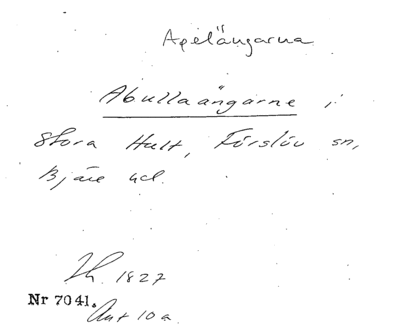 Apelängarna
Abullaängarne i
Stora Hult, Förslöv sn,
Bjäre hd.
Th. 1827
Nr 7041.
Ant 10 a